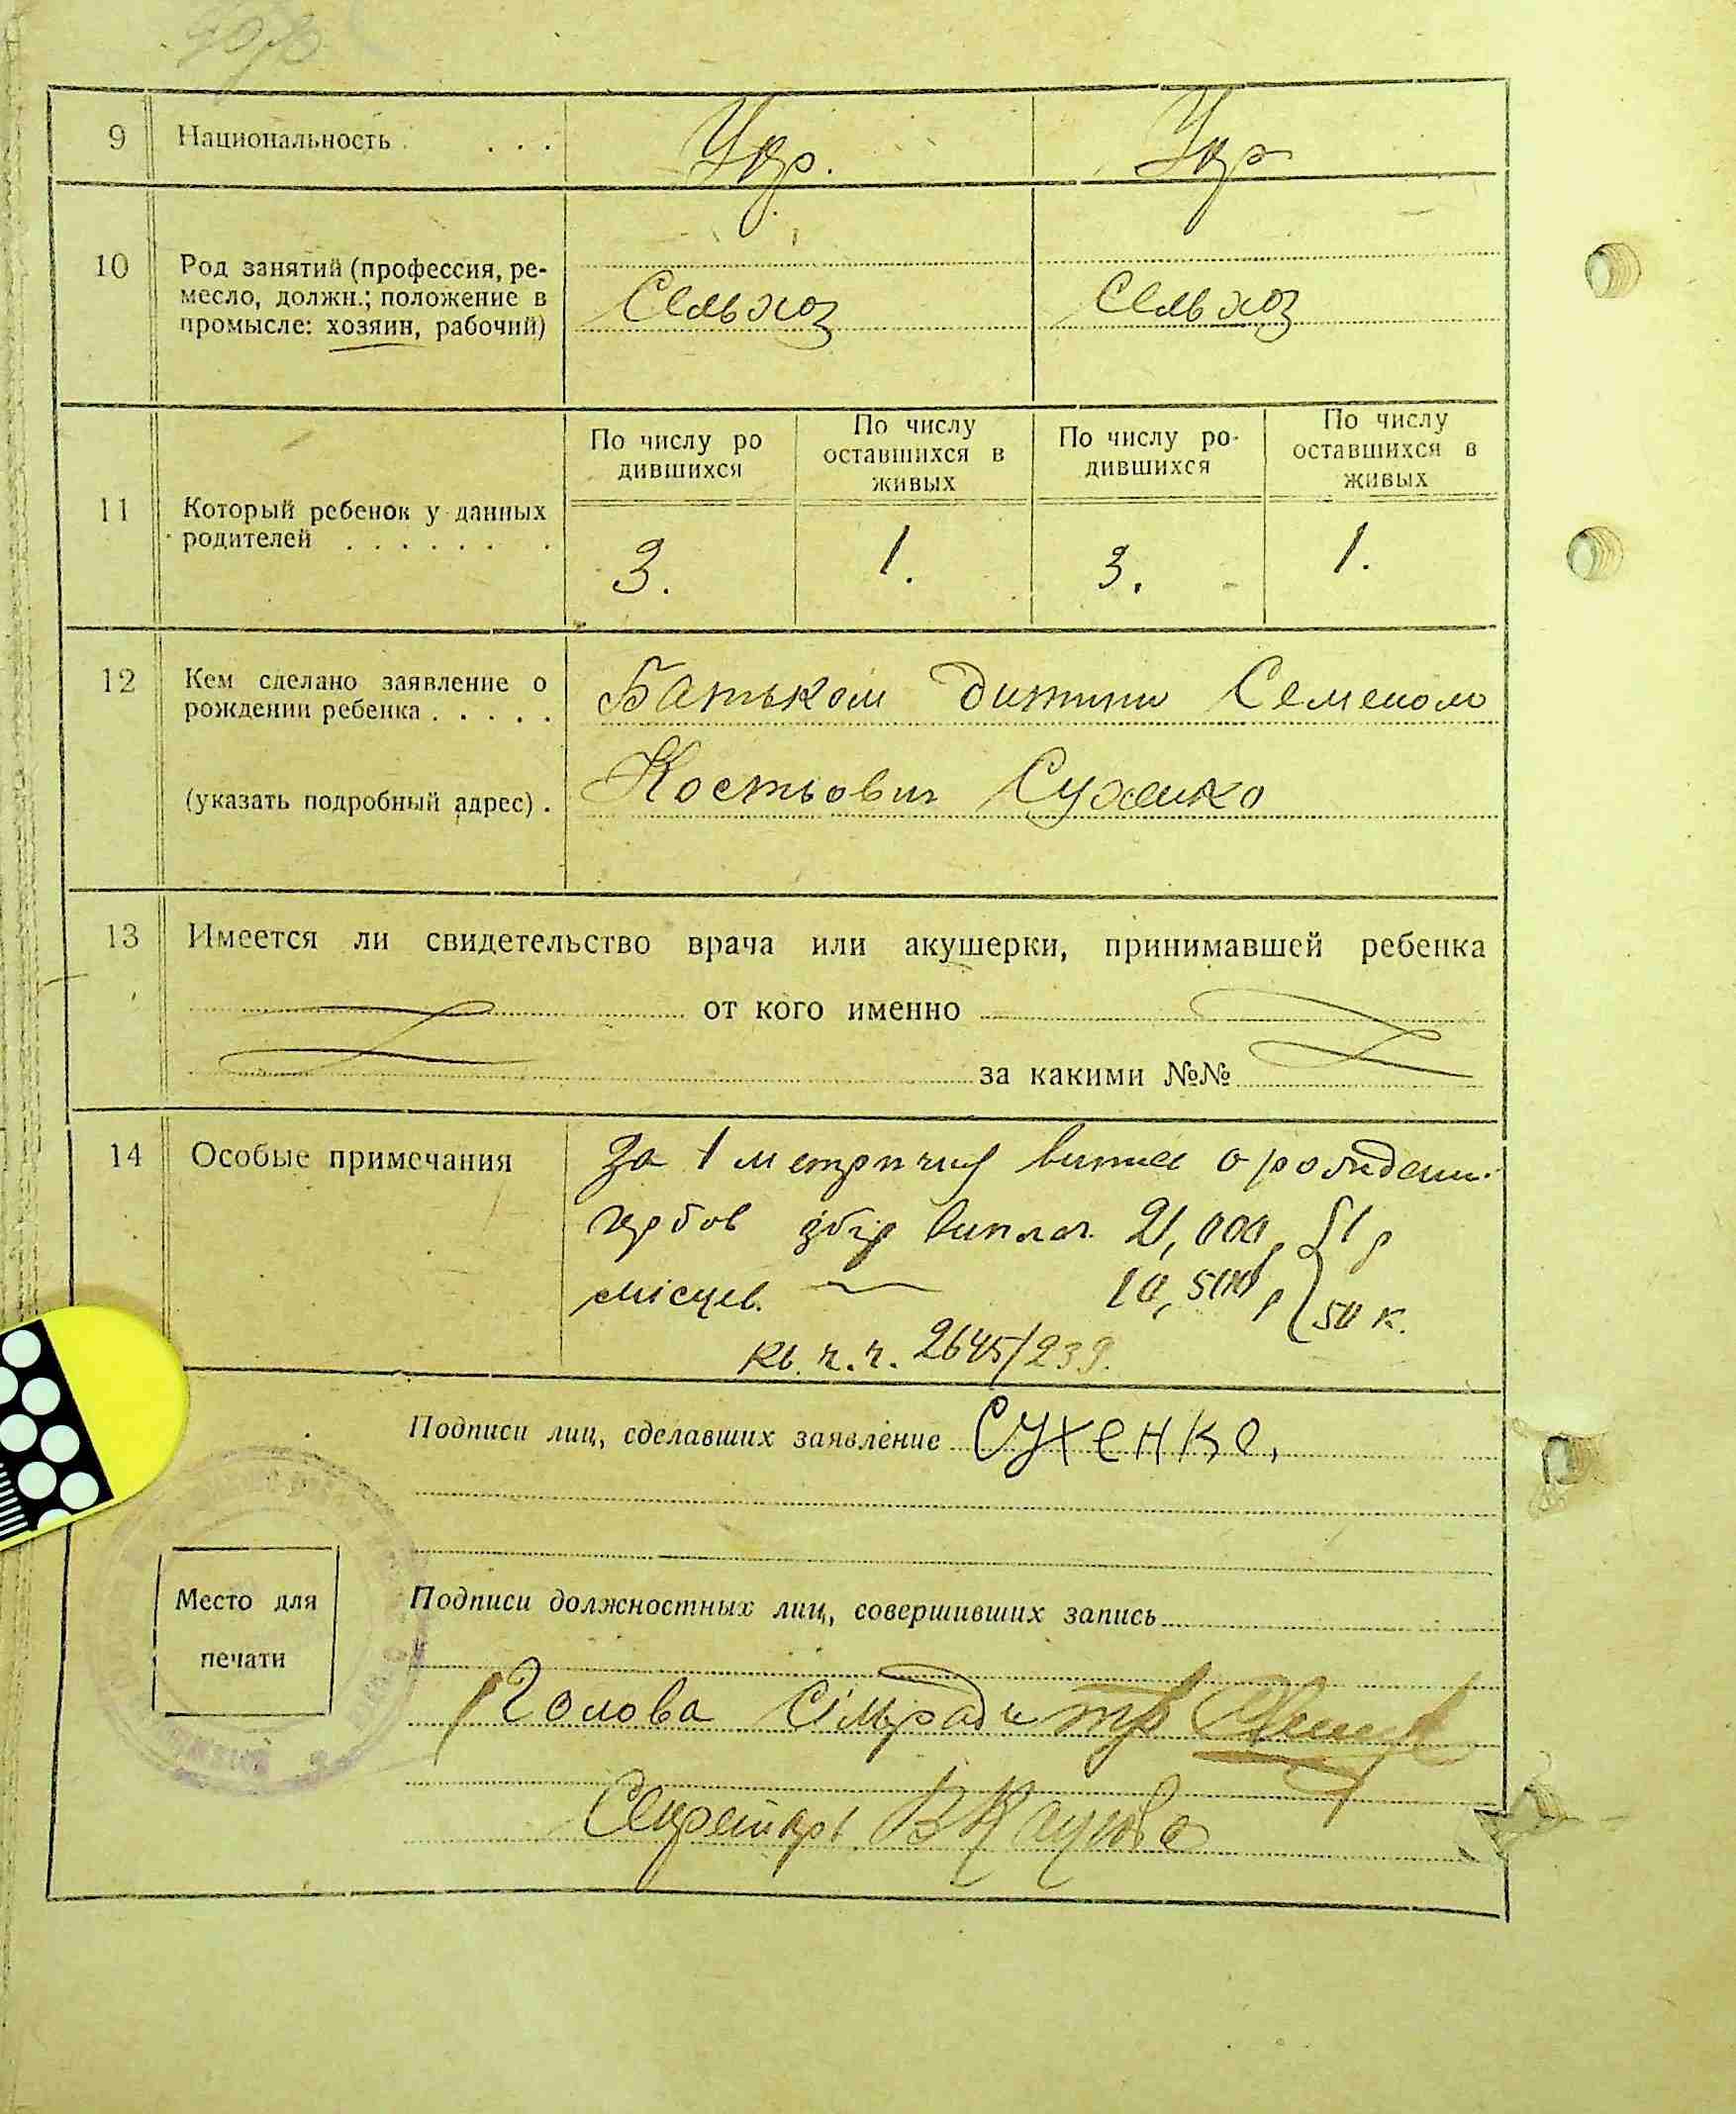 9 Национальность . . . Укр. Укр
10 Род занятий (профессия, ре-
месло, должн.; положение в
промысле: хозяин, рабочий)
Сельхоз Сельхоз
11 Который ребенок у данных
родителей . . . . . . .
По числу ро
дившихся
По числу
оставшихся в
живых
По числу ро-
дившихся
По числу
оставшихся в
живых
3. 1. 3. 1.
12 Кем сделано заявление о
рождении ребенка . . . . .
(указать подробный адрес) .
Батьком дитини Семеном
Костьовим Сухенко
13 Имеется ли свидетельство врача или акушерки, принимавшей ребенка
от кого именно
за какими №№
14 Особые примечания
За 1 метричну о рожден.
гербов збір виплач. 21,000 р 51 р
місцев. 10,500 р 50 к.
кв. ч.ч. 2645/239.
Подписи лиц, сделавших заявление Сухенко,
Место для
печати
Подписи должностных лиц, совершивших запись
Голова Сільради
Секретарь